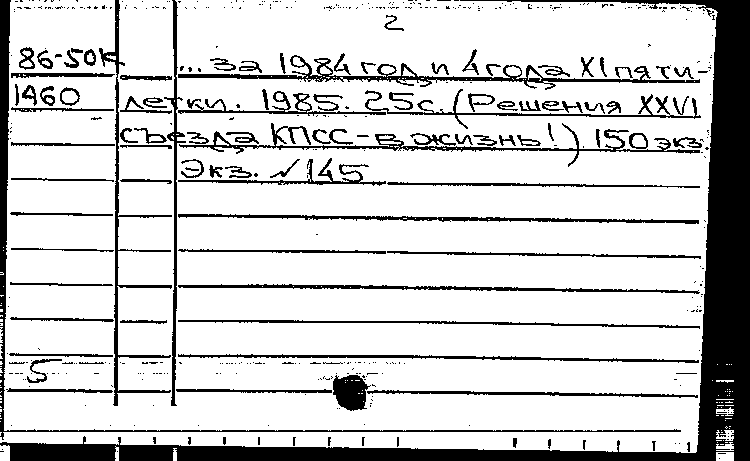 2
86-50к ... за 1984 год и 4 года XI пяти-
1460 летки. 1985. 25с. (Решения XXVI
съезда КПСС-в жизнь!) 150 экз.
Экз. №145
5